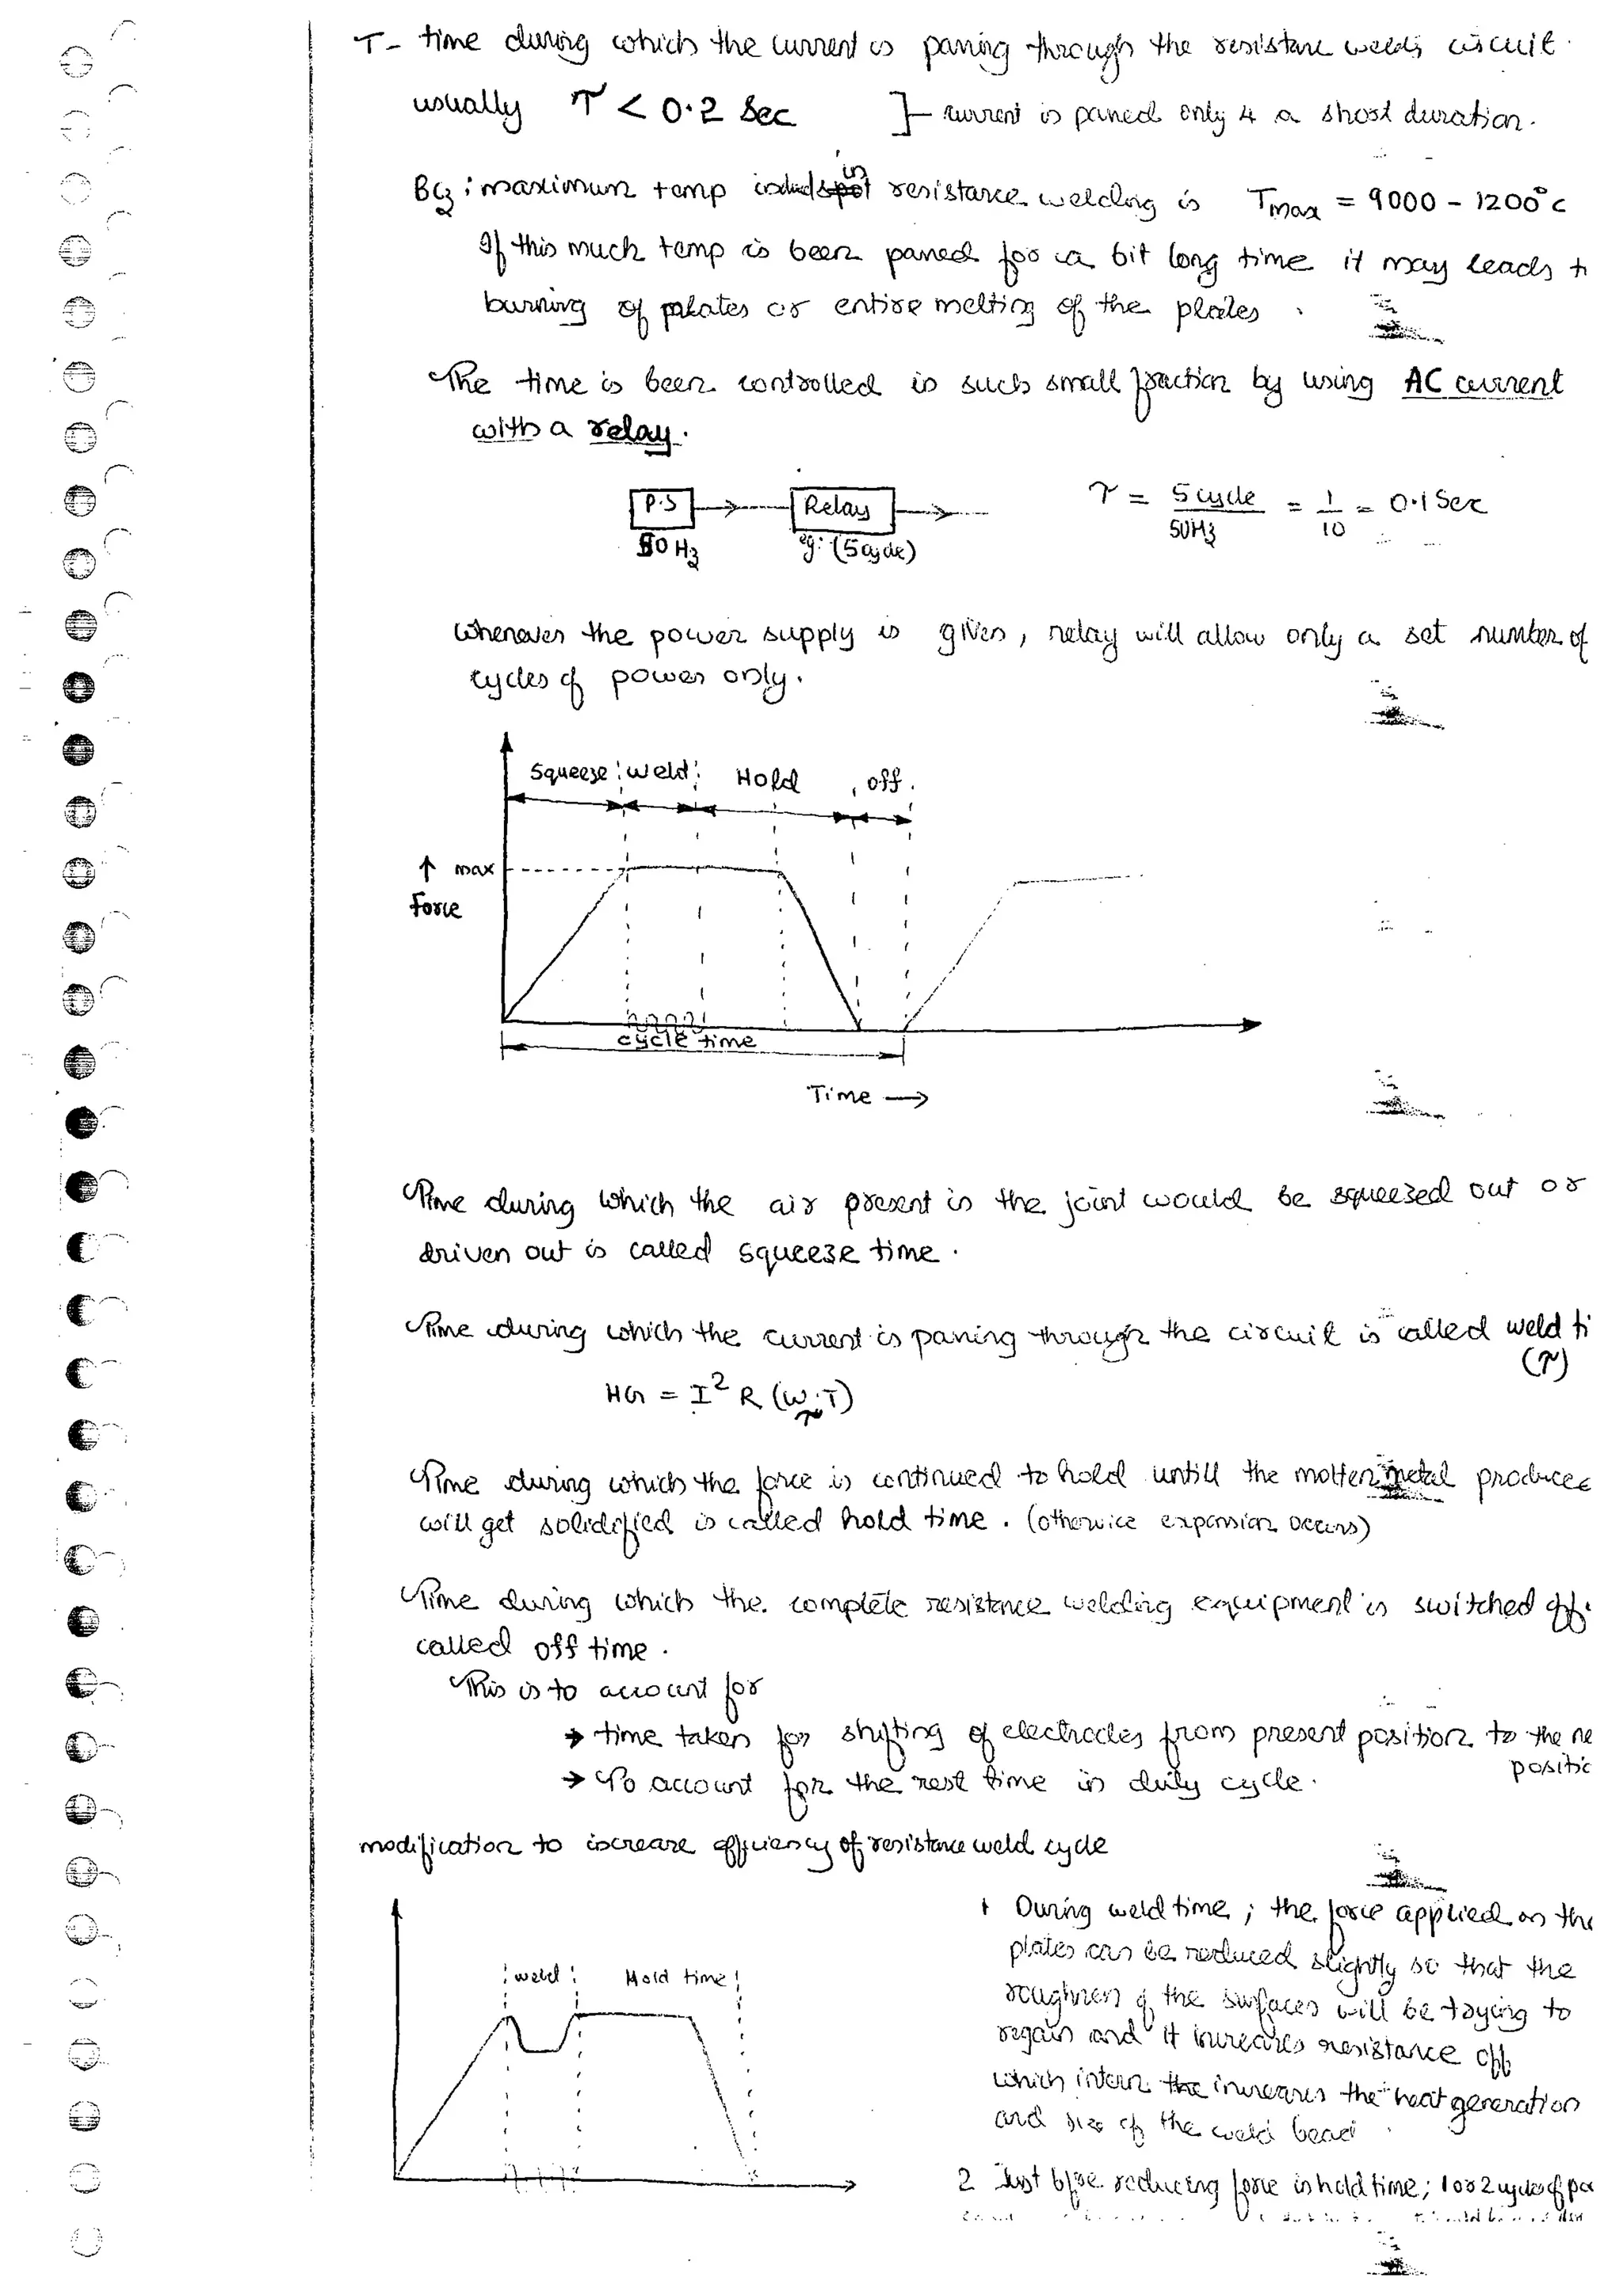 τ - time during which the current is passing through the resistance welds circuit.
usually τ < 0.2 Sec } current is passed only 4 a short duration.
BCz; maximum temp in resistance welding is Tmax = 9000 - 1200°C
If this much temp is been passed for a bit long time it may leads t
burning of plates or entire melting of the plates.
The time is been controlled in such small fraction by using AC current
with a relay.
P.S Relay τ = 5 cycle / 50Hz = 1/10 = 0.1 Sec
50 Hz eg: (5 cycle)
Whenever the power supply is given, relay will allow only a set number of
cycles of power only.
Squeeze weld Hold off
↑ max
Force
cycle time
Time →
Time during which the air present in the joint would be squeezed out or
driven out is called squeeze time.
Time during which the current is passing through the circuit is called weld ti
(τ)
HG = I² R (W.T)
τ
Time during which the force is continued to hold untill the molten metal produce
will get solidified is called hold time. (otherwice expansion occurs)
Time during which the complete resistance welding equipment is switched off.
called off time.
This is to account for
→ time taken for shifting of electrodes from present position to the ne
positio
→ To account for the rest time in duty cycle.
modification to increase efficiency of resistance weld cycle
weld Hold time
1 During weld time; the force applied on the
plates can be reduced slightly so that the
roughness of the surfaces will be trying to
regain and it increases resistance off
which intern the increases the heat generation
and size of the weld bead
2 Just b/re reducing force in hold time; 1 or 2 cycles of po